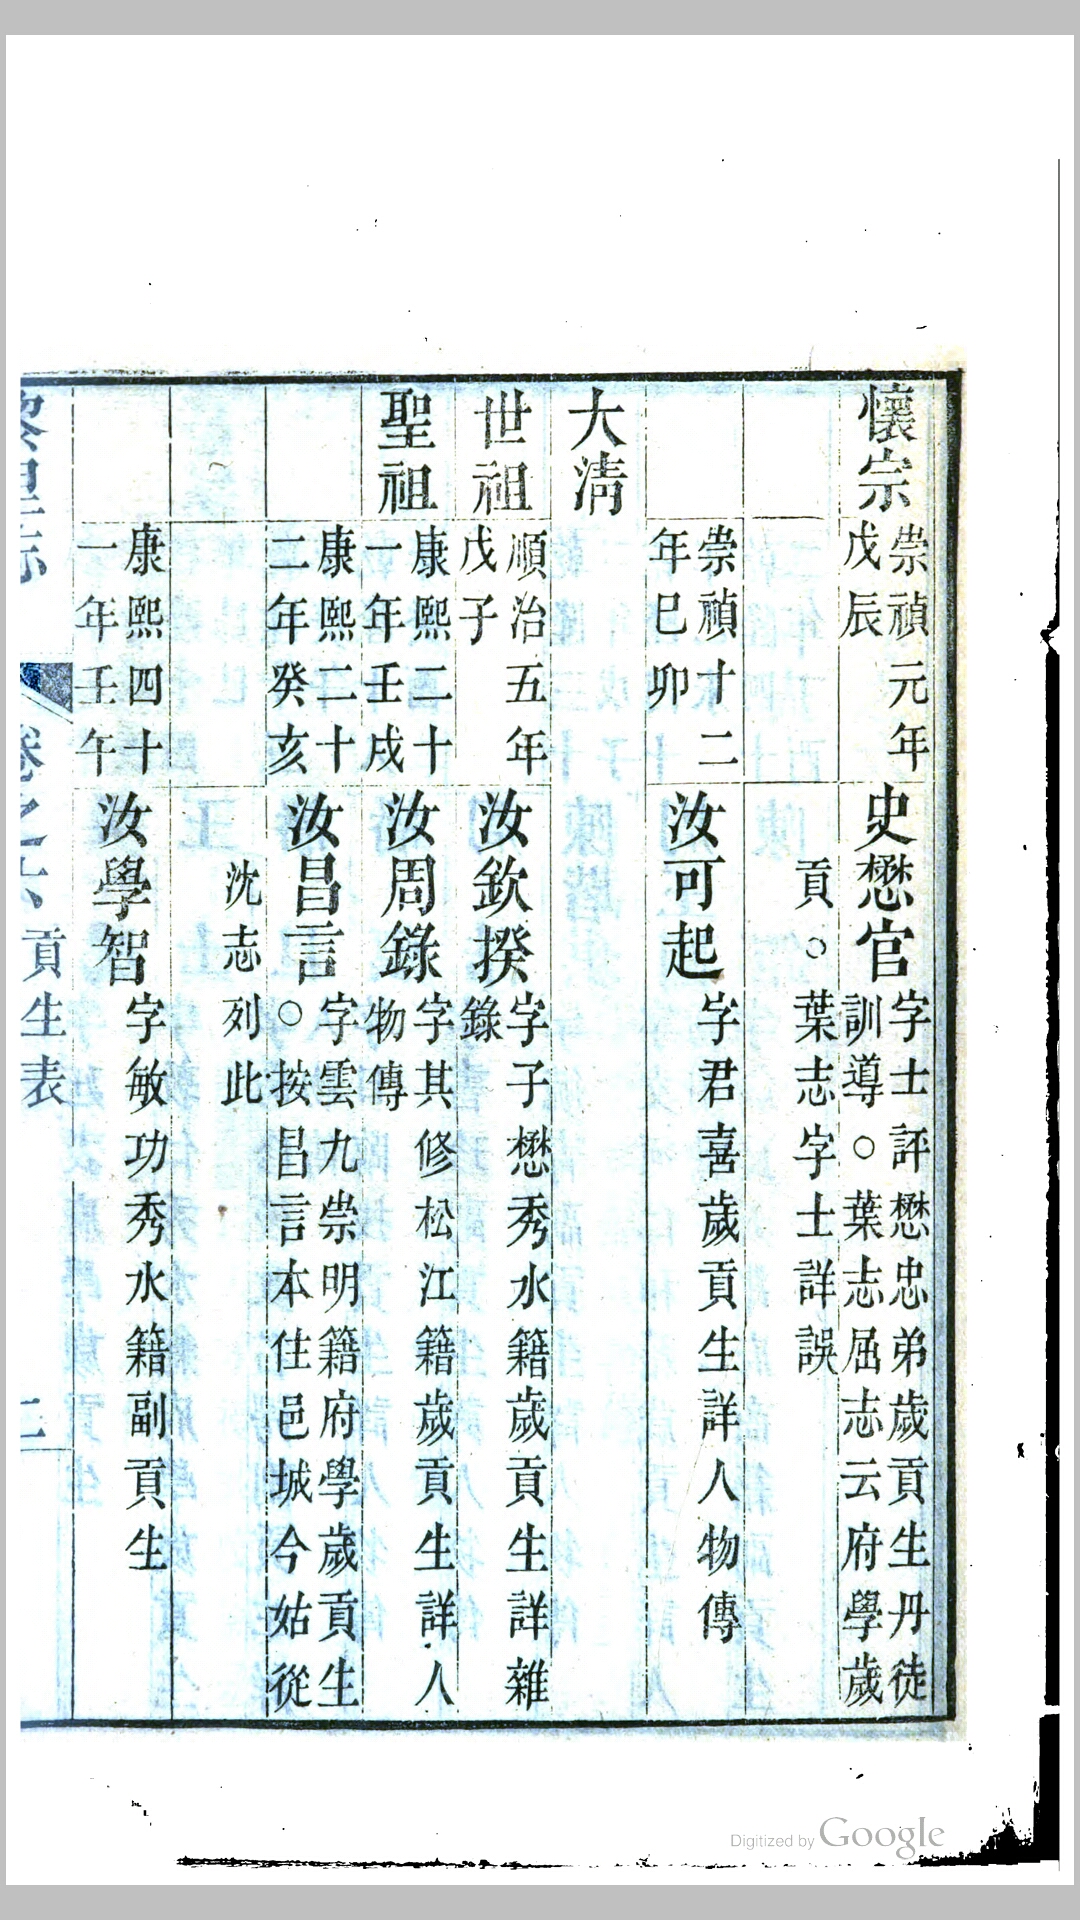 懷宗
崇禎元年
戊辰
史懋官
字士評懋忠弟歲貢生丹徒
訓導○葉志屈志云府學歲
貢○葉志字士詳誤
崇禎十二
年巳卯
汝可起
字君喜歲貢生詳人物傳
大清
世祖
順治五年
戊子
汝欽揆
字子懋秀水籍歲貢生詳雜
錄
聖祖
康熙二十
一年壬戌
汝周錄
字其修松江籍歲貢生詳人
物傳
康熙二十
二年癸亥
汝昌言
字雲九崇明籍府學歲貢生
○按昌言本住邑城今姑從
沈志列此
康熙四十
一年壬午
汝學智
字敏功秀水籍副貢生
黎里志
卷之六
貢生表
Digitized by Google